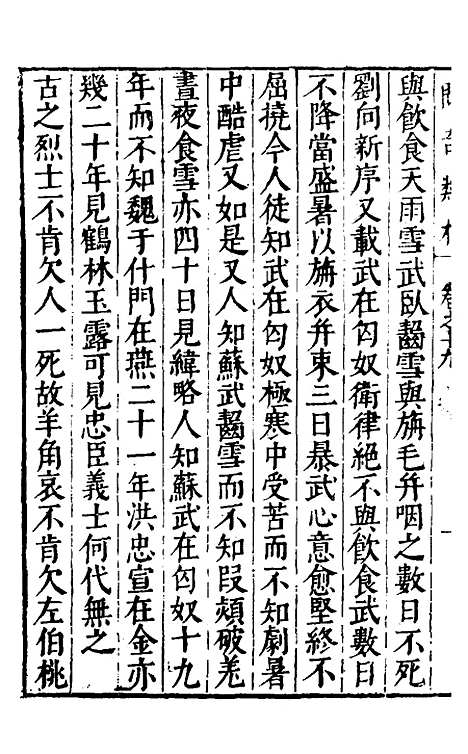 與飮食天雨雪武臥齧雪與旃毛幷咽之數日不死
劉向新序又載武在匈奴衛律絕不與飮食武數日
不降當盛暑以旃衣幷束三日暴武心意愈堅終不
屈撓今人徒知武在匈奴極寒中受苦而不知劇暑
中酷虐又如是又人知蘇武齧雪而不知段熲破羌
晝夜食雪亦四十日見緯略人知蘇武在匈奴十九
年而不知魏于什門在燕二十一年洪忠宣在金亦
幾二十年見鶴林玉露可見忠臣義士何代無之
古之烈士不肯欠人一死故羊角哀不肯欠左伯桃